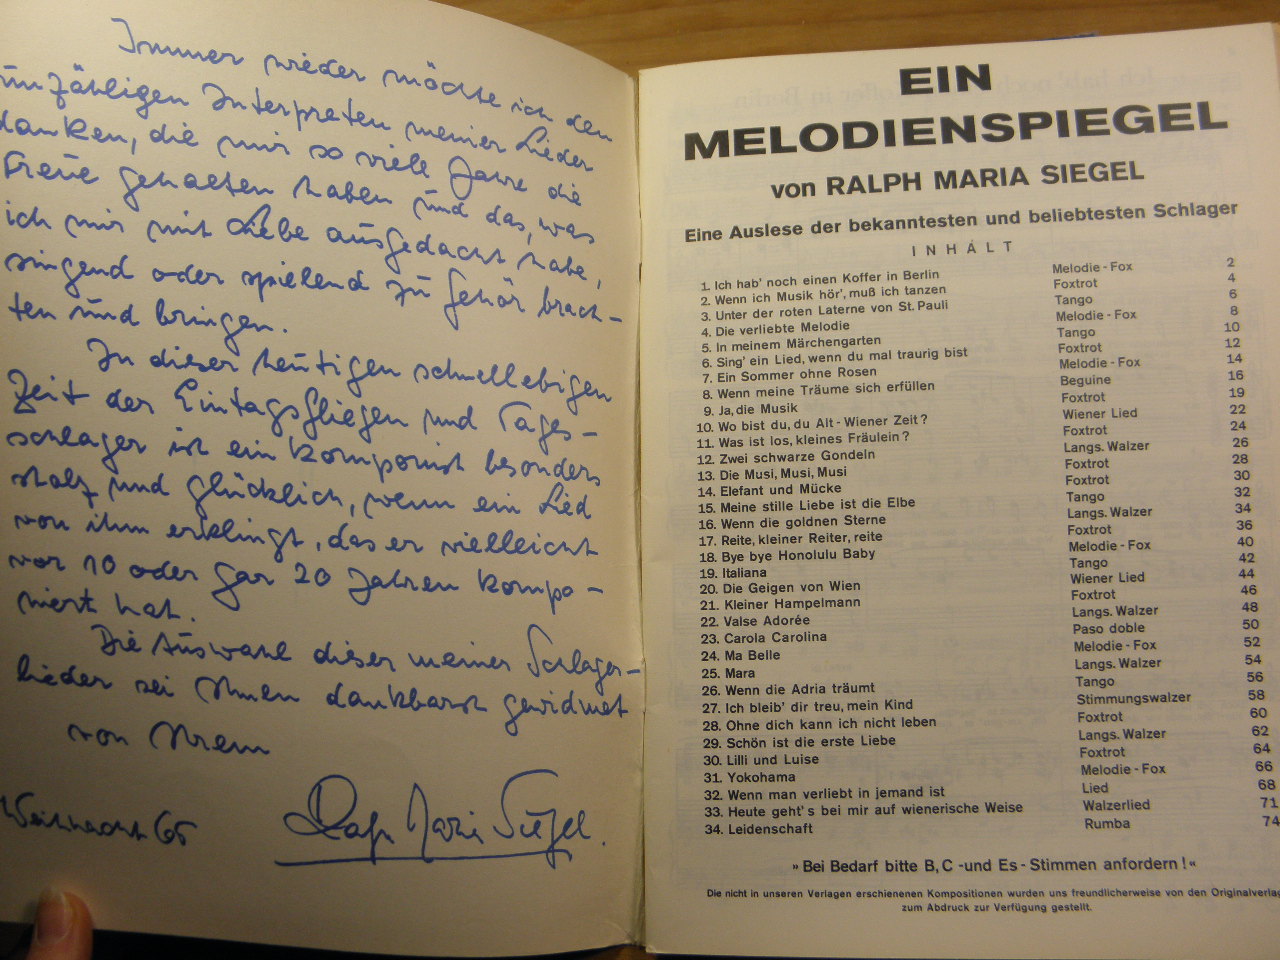 Immer wieder möchte ich den
unzähligen Interpreten meiner Lieder
danken, die mir so viele Jahre die
Treue gehalten haben und das, was
ich mir mit Liebe ausgedacht habe,
singend oder spielend zu Gehör brach-
ten und bringen.
In dieser heutigen schnellebigen
Zeit der Eintagsfliegen und Tages-
schlager ist ein Komponist besonders
stolz und glücklich, wenn ein Lied
von ihm erklingt, das er vielleicht
vor 10 oder gar 20 Jahren kompo-
niert hat.
Die Auswahl dieser meiner Schlager-
lieder sei Ihnen dankbarst gewidmet
von Ihrem
Weihnacht 65
Ralph Maria Siegel.
EIN
MELODIENSPIEGEL
von RALPH MARIA SIEGEL
Eine Auslese der bekanntesten und beliebtesten Schlager
INHALT
1. Ich hab' noch einen Koffer in Berlin Melodie-Fox 2
2. Wenn ich Musik hör', muß ich tanzen Foxtrot 4
3. Unter der roten Laterne von St. Pauli Tango 6
4. Die verliebte Melodie Melodie-Fox 8
5. In meinem Märchengarten Tango 10
6. Sing' ein Lied, wenn du mal traurig bist Foxtrot 12
7. Ein Sommer ohne Rosen Melodie-Fox 14
8. Wenn meine Träume sich erfüllen Beguine 16
9. Ja, die Musik Foxtrot 19
10. Wo bist du, du Alt-Wiener Zeit? Wiener Lied 22
11. Was ist los, kleines Fräulein? Foxtrot 24
12. Zwei schwarze Gondeln Langs. Walzer 26
13. Die Musi, Musi, Musi Foxtrot 28
14. Elefant und Mücke Foxtrot 30
15. Meine stille Liebe ist die Elbe Tango 32
16. Wenn die goldnen Sterne Langs. Walzer 34
17. Reite, kleiner Reiter, reite Foxtrot 36
18. Bye bye Honolulu Baby Melodie-Fox 40
19. Italiana Tango 42
20. Die Geigen von Wien Wiener Lied 44
21. Kleiner Hampelmann Foxtrot 46
22. Valse Adorée Langs. Walzer 48
23. Carola Carolina Paso doble 50
24. Ma Belle Melodie-Fox 52
25. Mara Langs. Walzer 54
26. Wenn die Adria träumt Tango 56
27. Ich bleib' dir treu, mein Kind Stimmungswalzer 58
28. Ohne dich kann ich nicht leben Foxtrot 60
29. Schön ist die erste Liebe Langs. Walzer 62
30. Lilli und Luise Foxtrot 64
31. Yokohama Melodie-Fox 66
32. Wenn man verliebt in jemand ist Lied 68
33. Heute geht's bei mir auf wienerische Weise Walzerlied 71
34. Leidenschaft Rumba 74
»Bei Bedarf bitte B, C-und Es-Stimmen anfordern!«
Die nicht in unseren Verlagen erschienenen Kompositionen wurden uns freundlicherweise von den Originalverlag
zum Abdruck zur Verfügung gestellt.